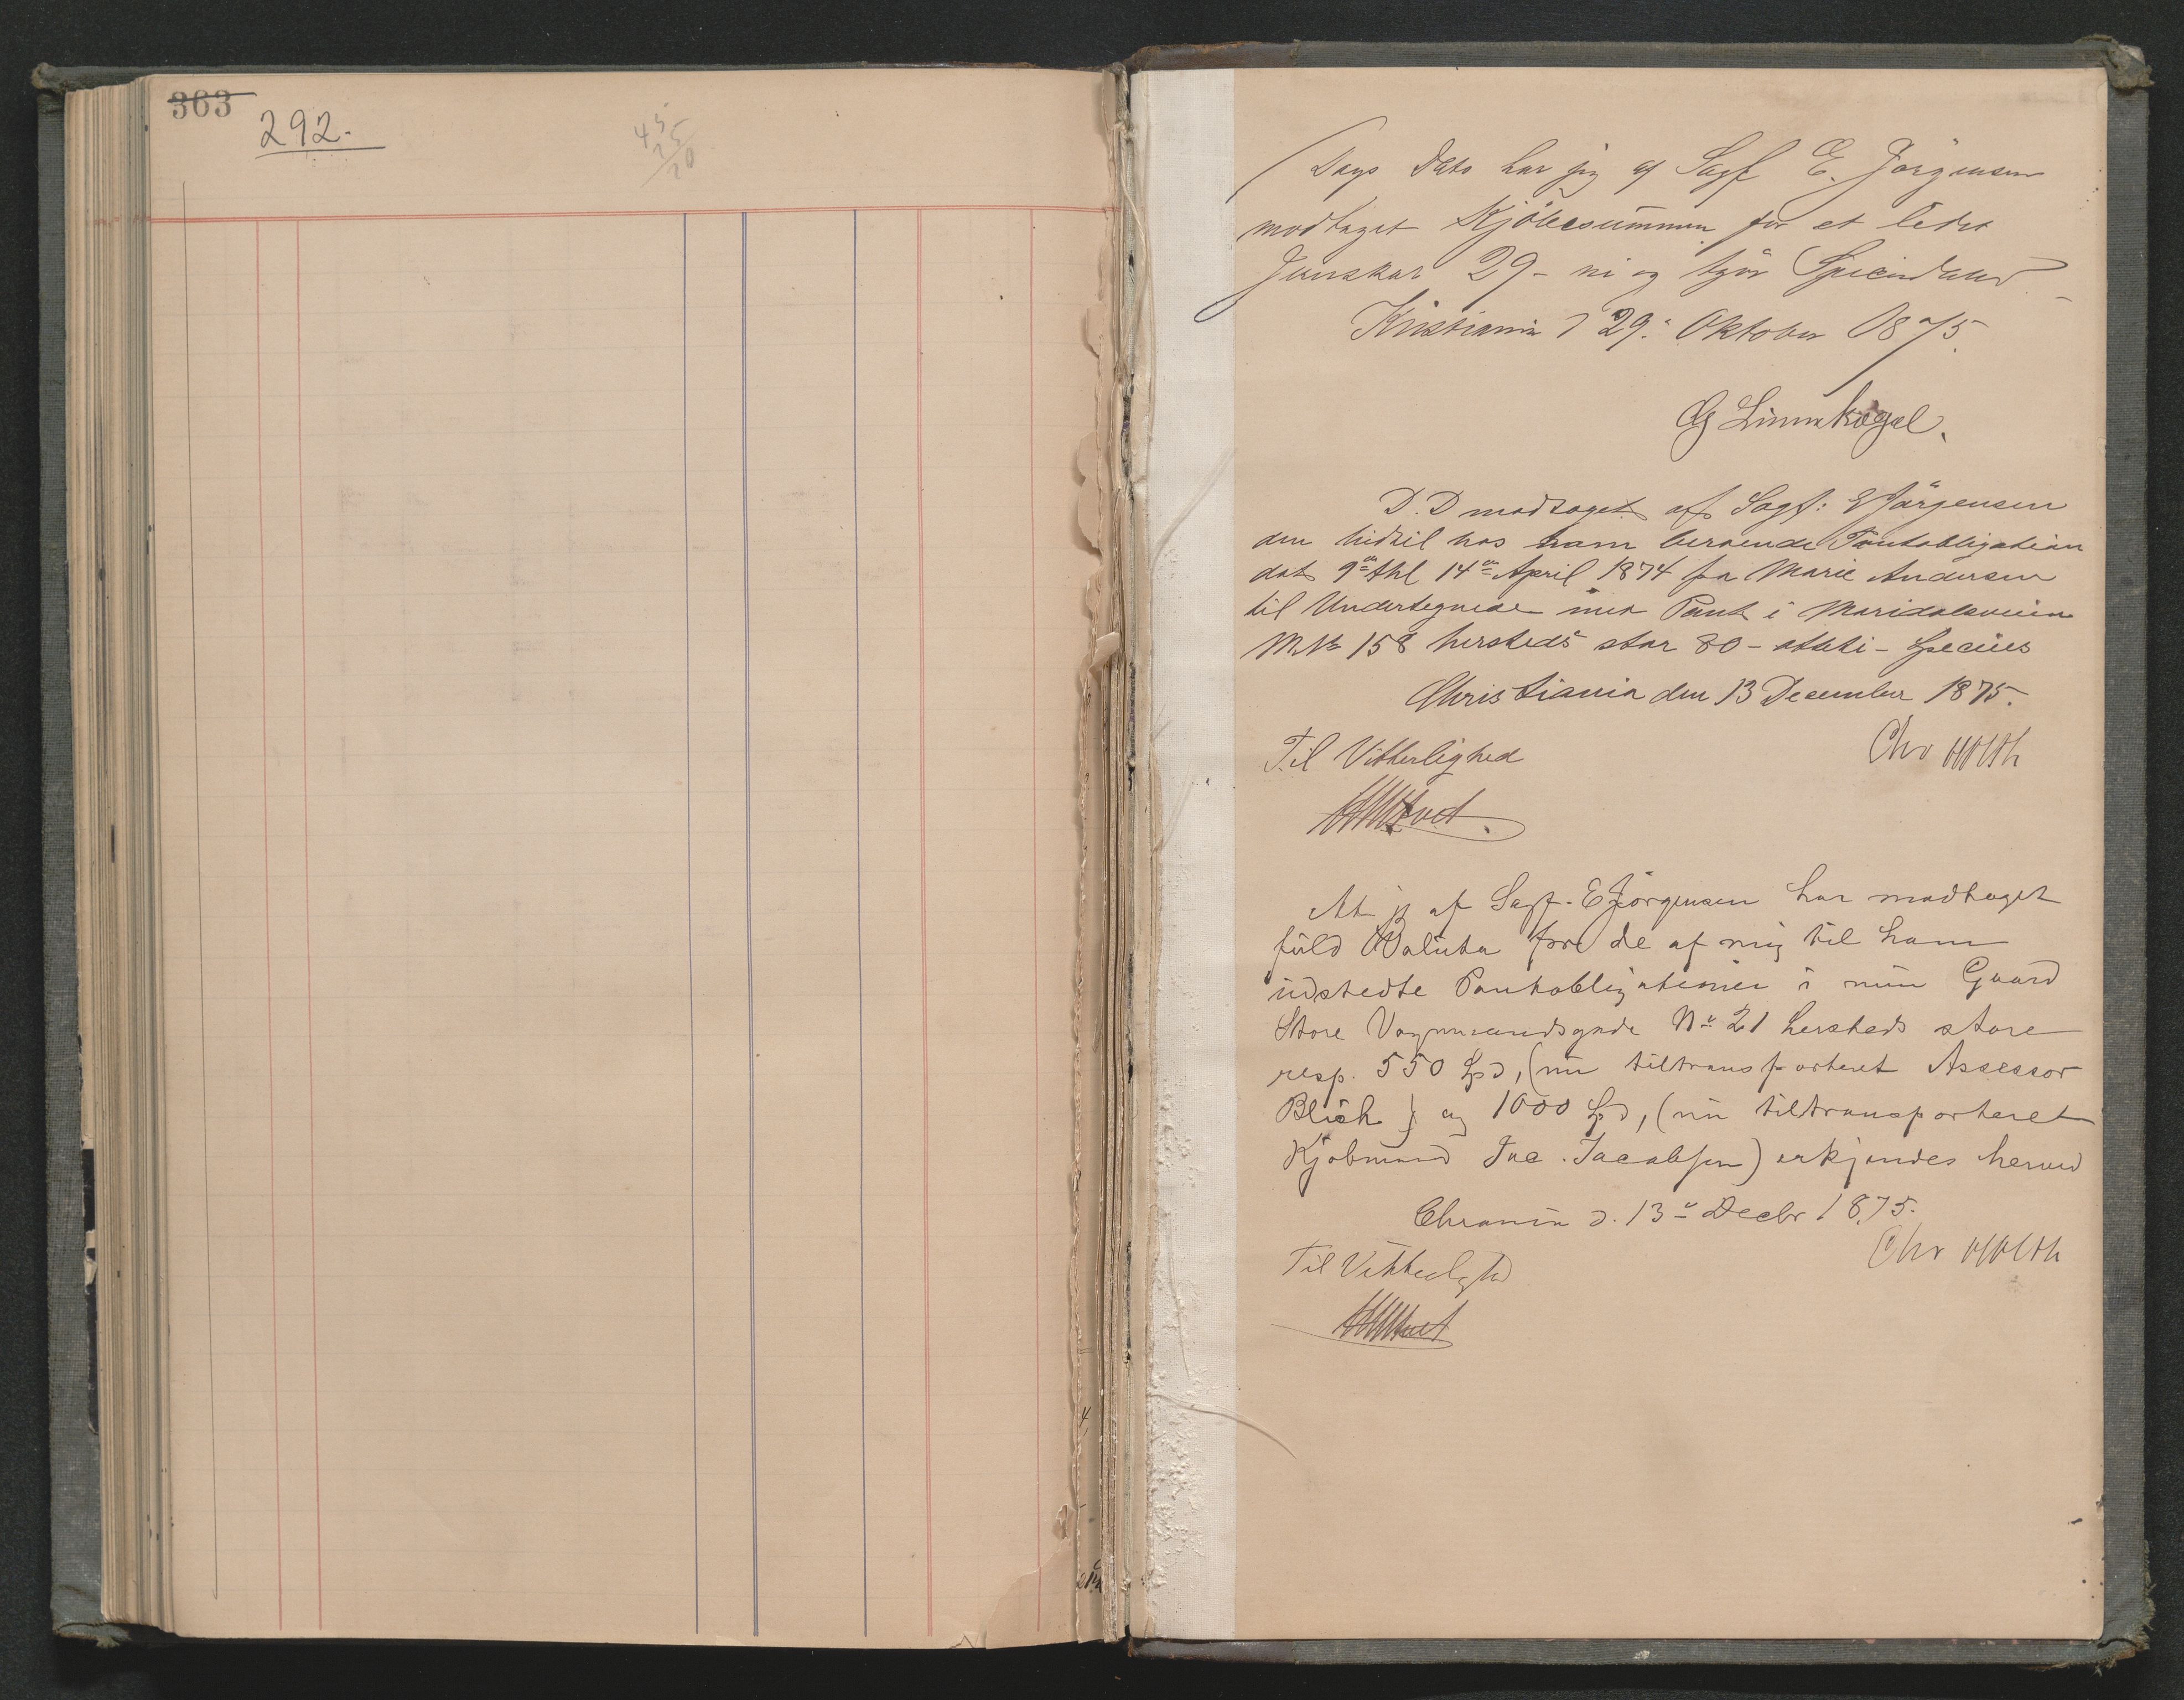 363
292.
45
25
20
Dags Dato har jeg af Sagf E. Jörgensen
modtaget Kjöbesummen for et lidet
29 - ni og tyve Speciedaler
Kristiania d 29. Oktober 1875.
D. D modtaget af Sagf: E Jørgensen
den hidtil hos ham beroende Pantobligation
dat 9de thl 14de April 1874 fra Marie Andersen
til Undertegnede med Pant i Maridalsveien
M No 158 hersteds stor 80 - otteti - Species
Christiania den 13 December 1875.
Til Vitterlighed
Chr Holth
At jeg af Sagf. E Jörgensen har modtaget
fuld Valuta for de af mig til ham
udstedte Pantobligationer i min Gaard
Store Vognmandsgade No 21 hersteds store
resp. 550 Spd, (nu tiltransporteret Assessor
Blich) og 1000 Spd, (nu tiltransporteret
Kjöbmand Jac. Jacobsen) erkjendes herved
Chrania d. 13de Decbr 1875.
Til Vitterlighed
Chr Holth